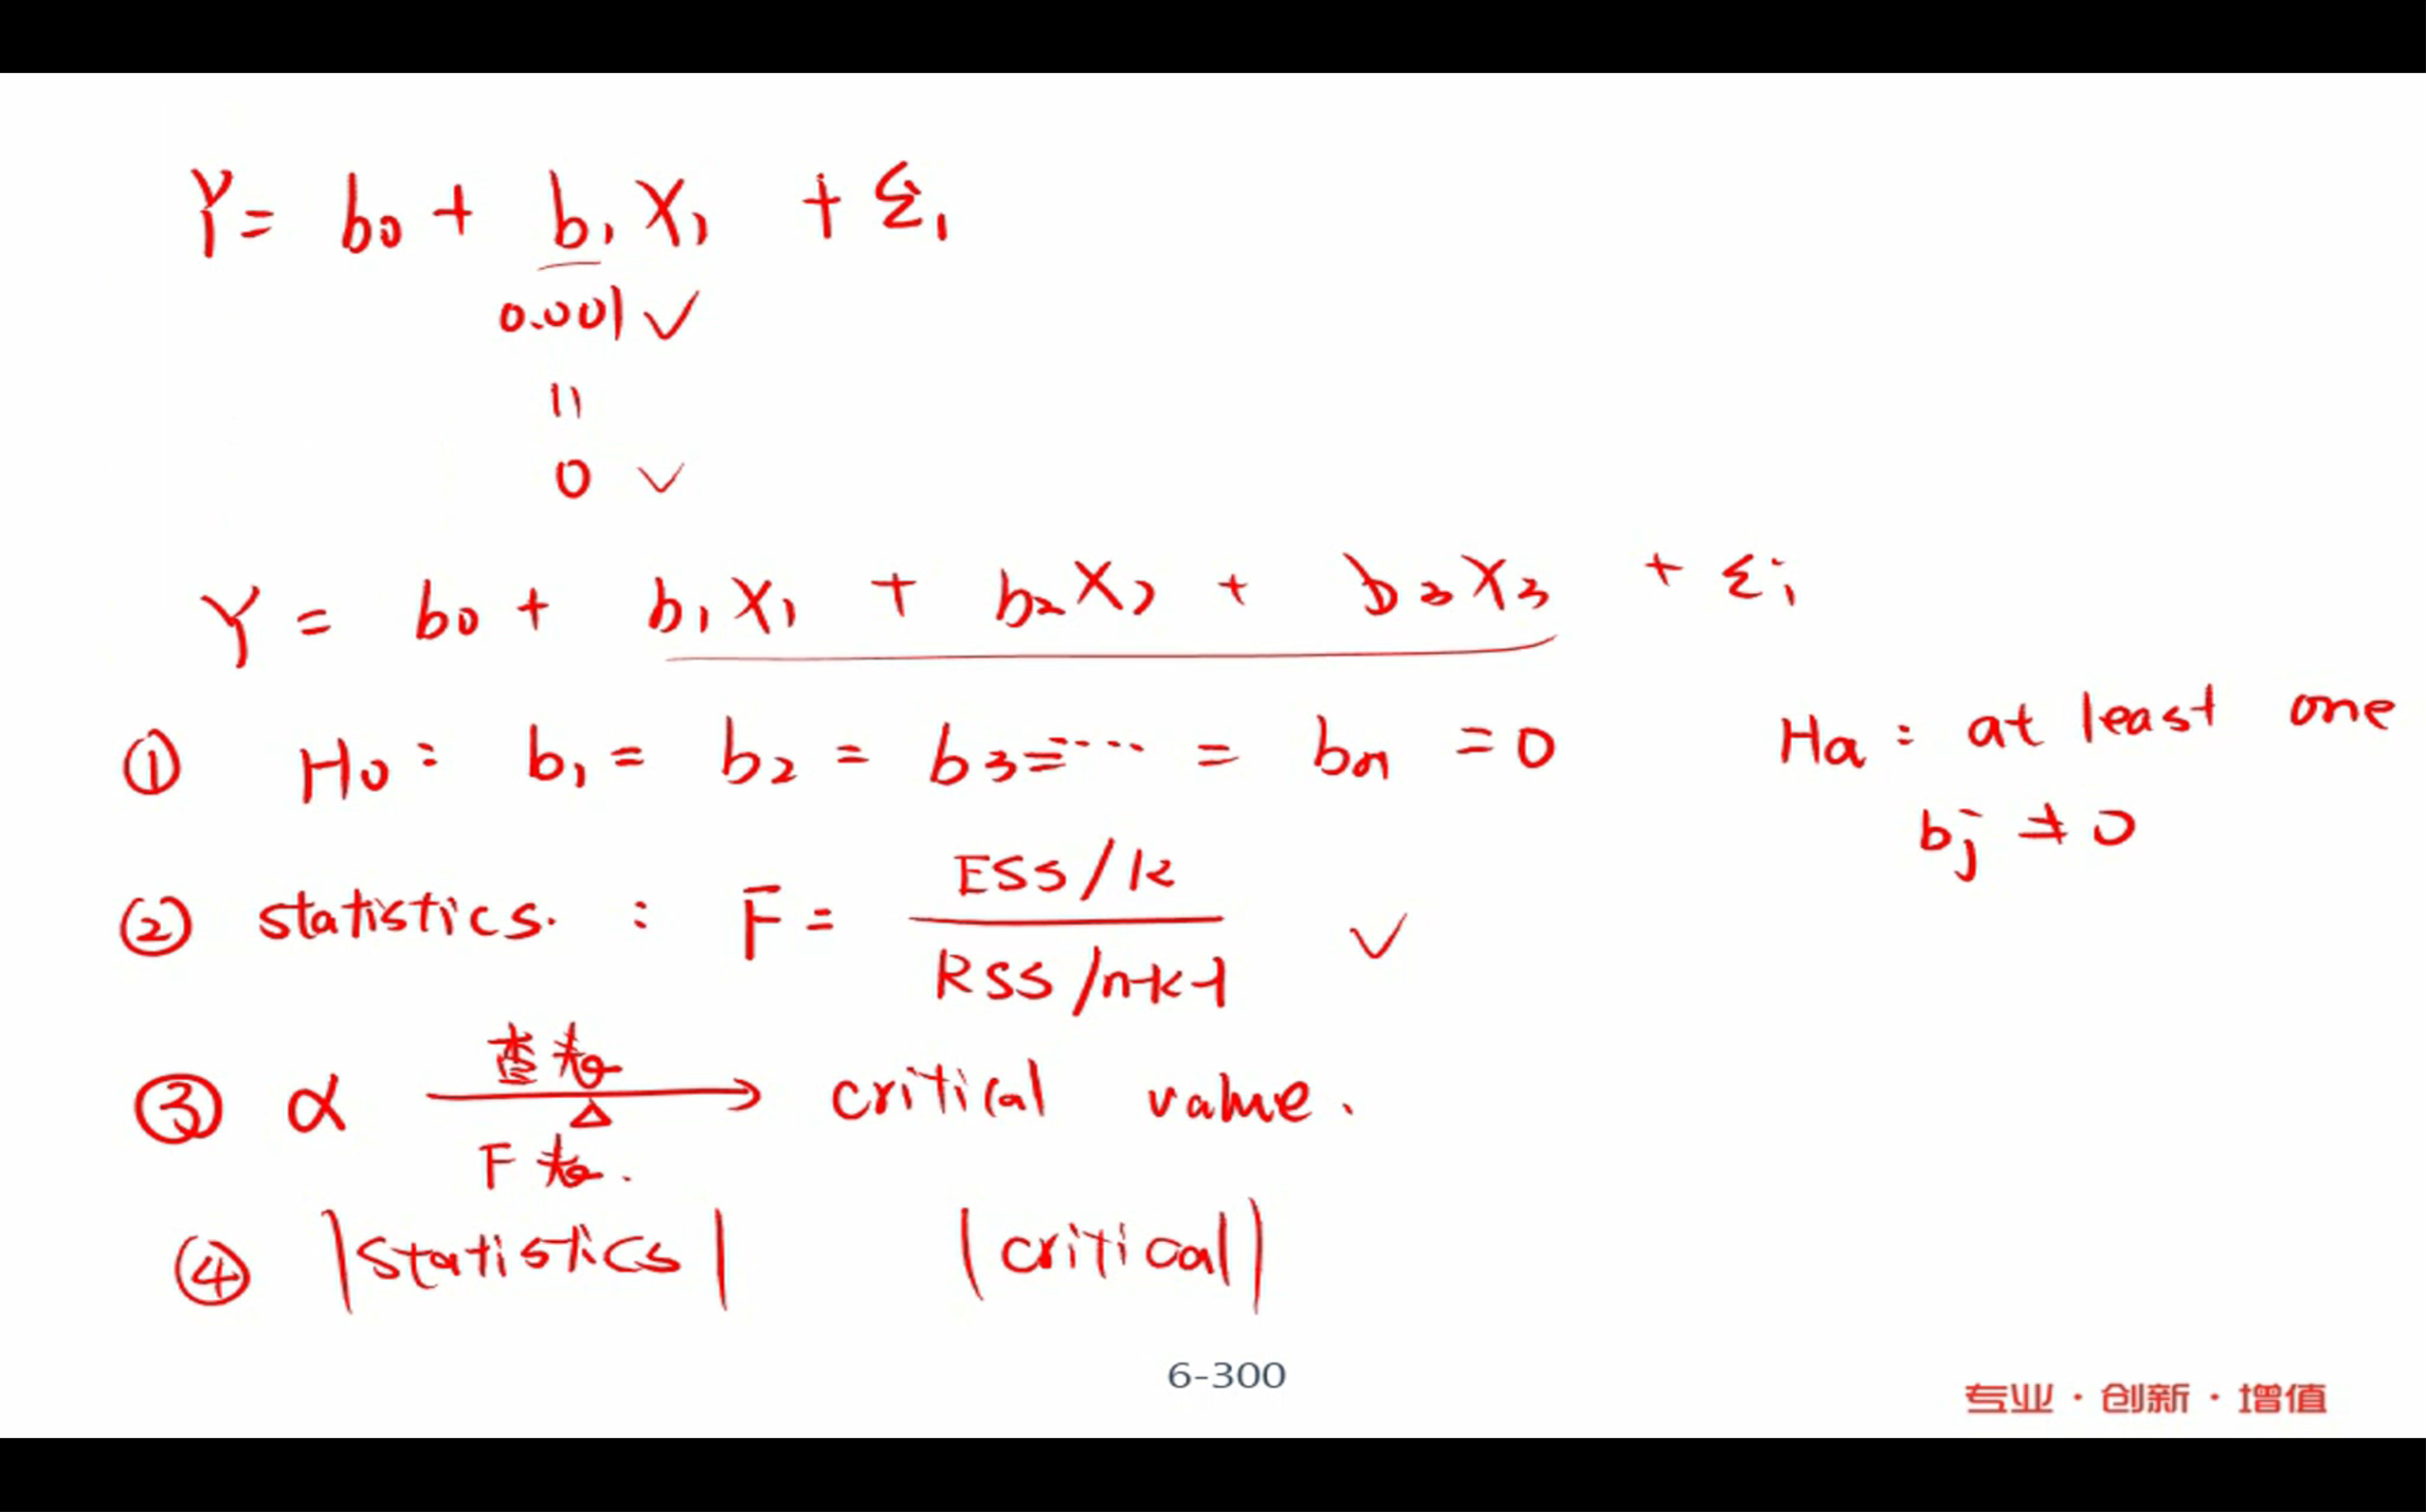 Y = b0 + b1 X1 + ε1
0.001 ✓
=
0 ✓
Y = b0 + b1X1 + b2X2 + b3X3 + εi
① H0: b1 = b2 = b3 = ... = bn = 0 Ha: at least one
bj ≠ 0
② statistics. : F = ESS/k
RSS/n-k-1 ✓
③ α 查表 → critical value.
△
F 表.
④ |statistics| |critical|
6-300
专业·创新·增值